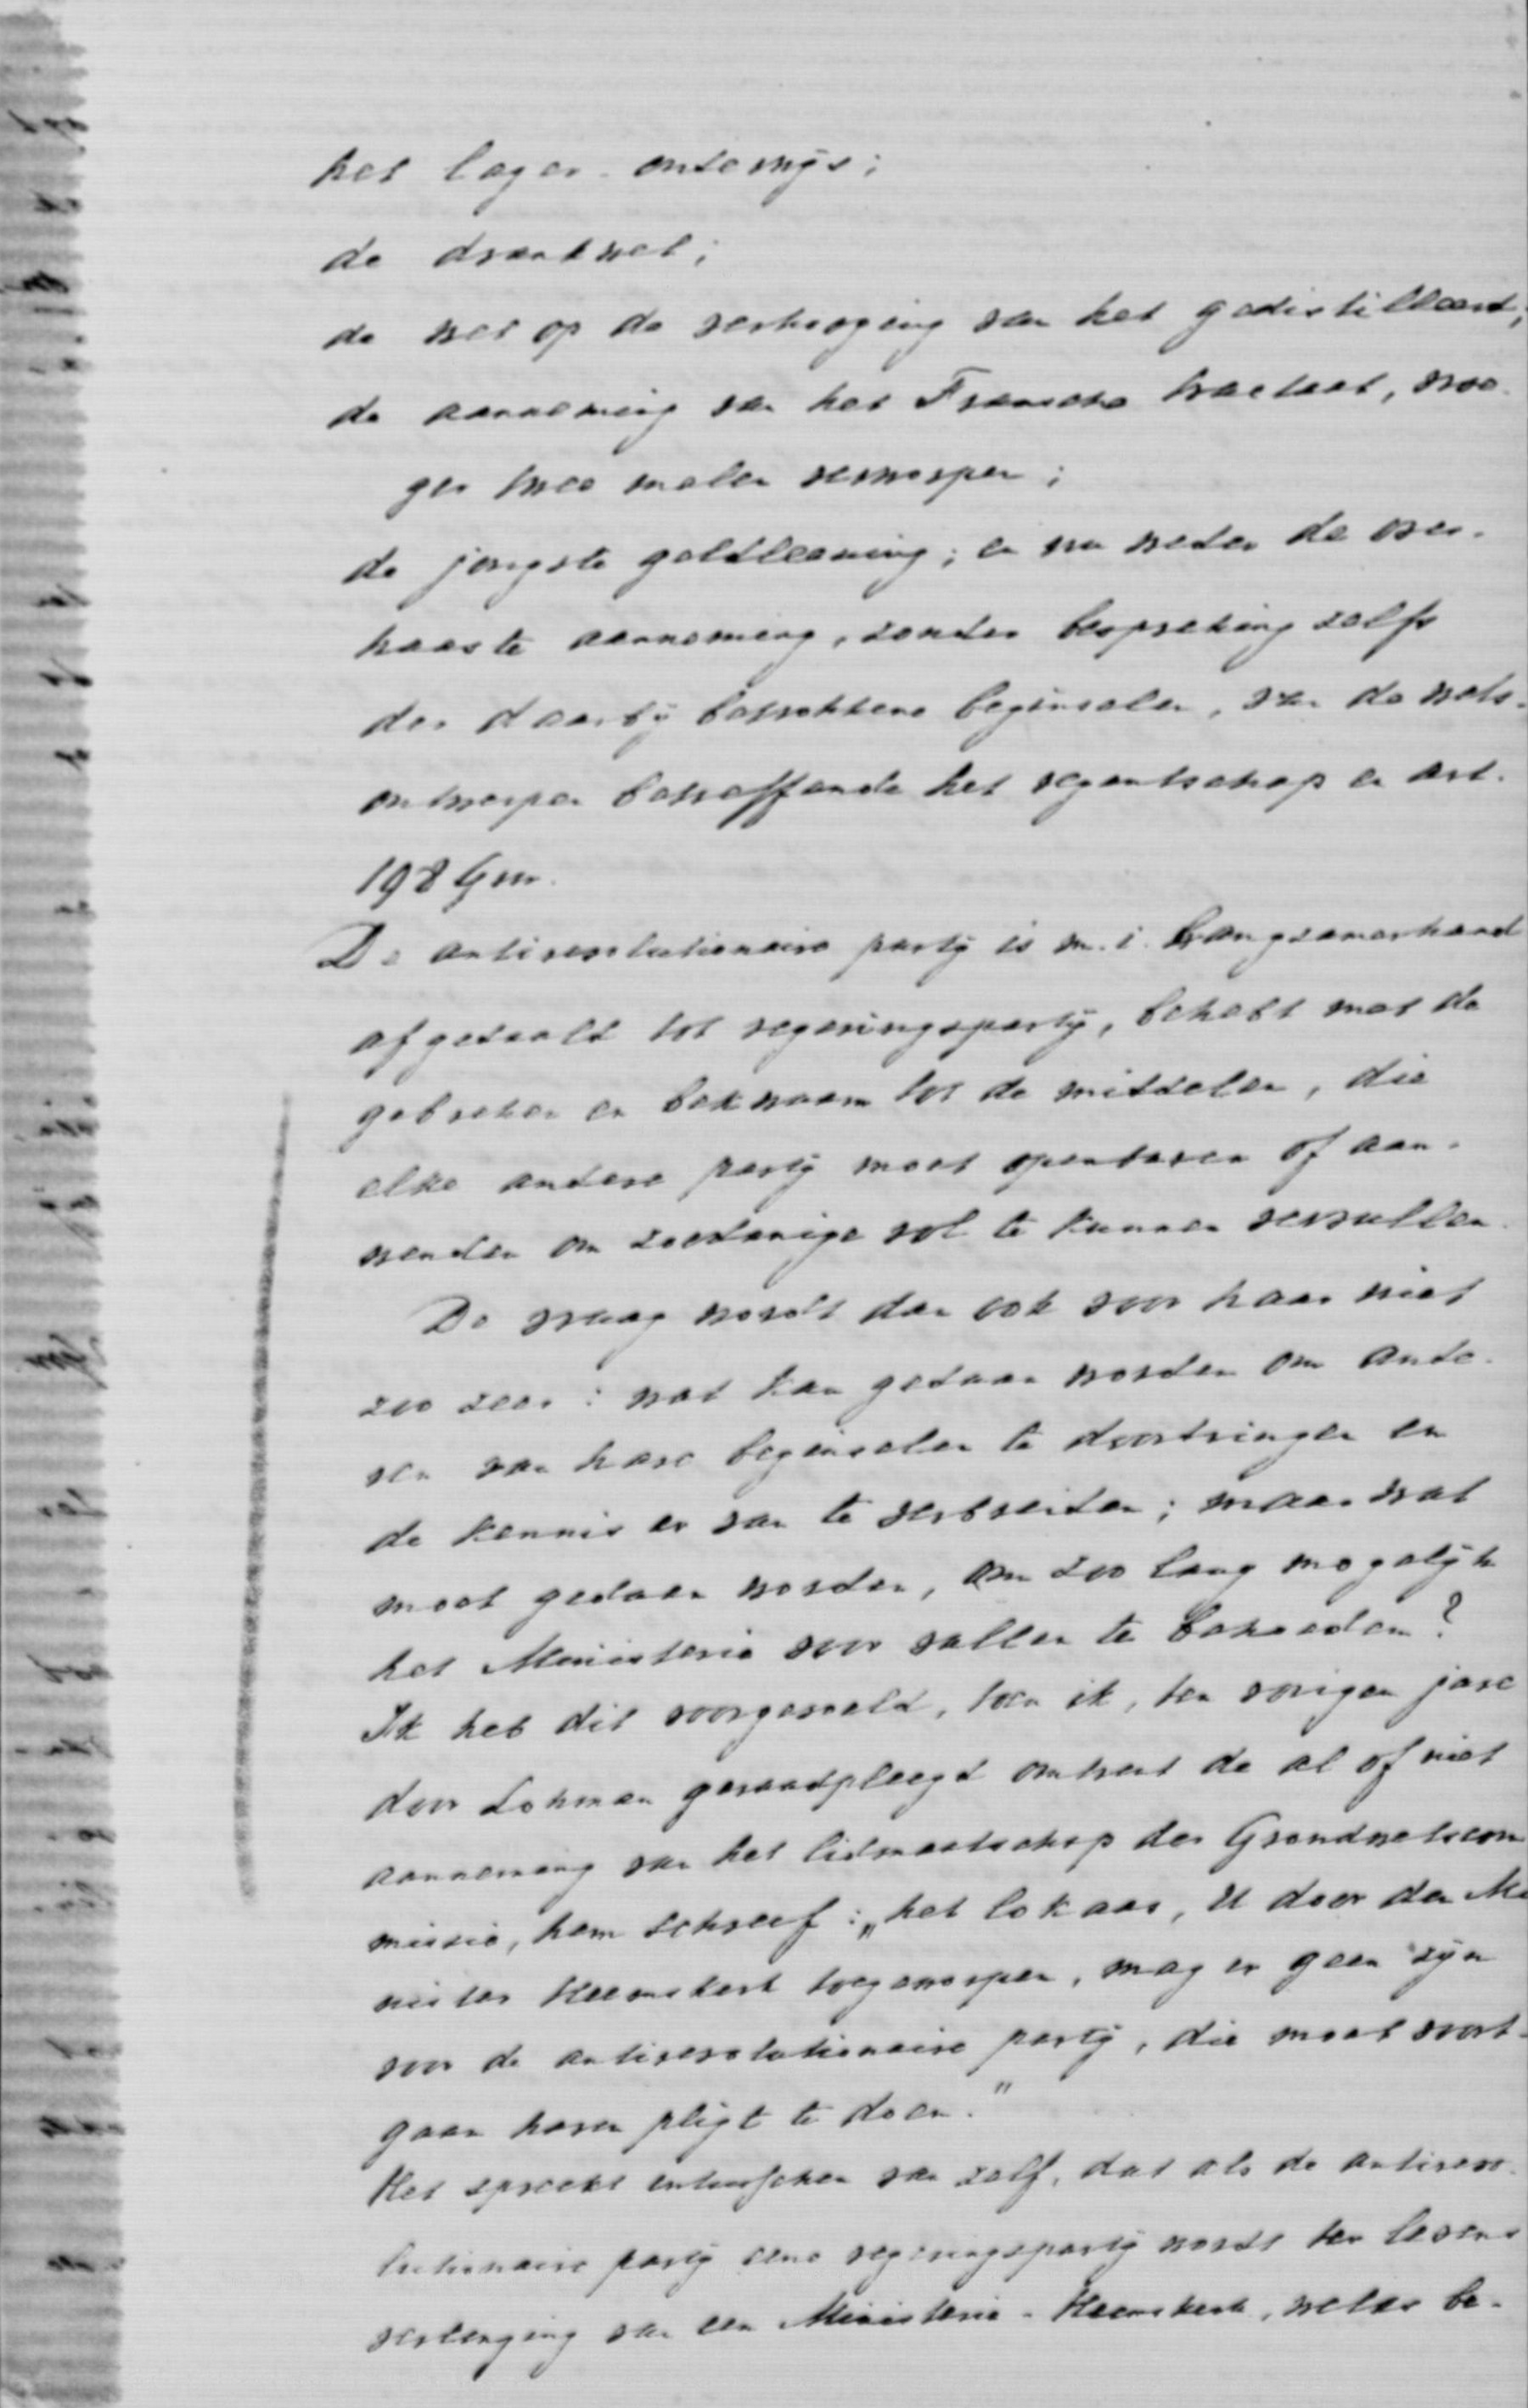 het lager onderwijs;
de drankwet;
de wet op de verhooging van het gedistilleerd;
de aanneming van het Fransche tractaat, vroe-
ger twee malen verworpen;
de jongste geldleening; en nu weder de over-
haaste aanneming, zonder bespreking zelfs
der daarbij betrokkene beginselen, van de wets-
ontwerpen betreffende het regentschap en art.
198 Gw.
De antirevolutionaire partij is m.i. langzamerhand
afgedaald tot regeringspartij, behebt met de
gebreken en bekwaam tot de middelen, die
elke andere partij moet openbaren of aan-
wenden om zoodanige rol te kunnen vervullen.
De vraag wordt dan ook voor haar niet
zoo zeer: wat kan gedaan worden om ande-
ren van hare beginselen te doordringen en
de kennis er van te verbreiden; maar wat
moet gedaan worden, om zoo lang mogelijk
het Ministerie voor vallen te behoeden?
Ik heb dit voorgevoeld, toen ik, ten vorigen jare
door Lohman geraadpleegd omtrent de al of niet
aanneming van het lidmaatschap der Grondwetscom
missie, hem schreef: „het lokaas, U door den Mi
nister Heemskerk toegeworpen, mag er geen zijn
voor de antirevolutionaire partij, die moet voort-
gaan haren pligt te doen."
Het spreekt intusschen van zelf, dat als de antirevo-
lutionaire partij eene regeringspartij wordt ter levens
verlenging van een Ministerie-Heemskerk, welks be-